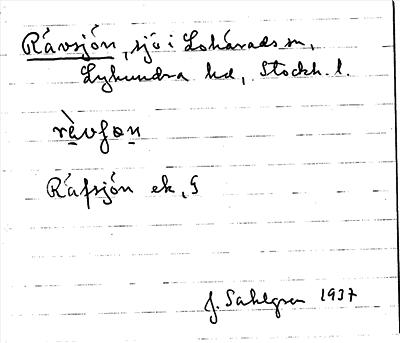 Rávsjón, sjö i Lohärads sn,
Lyhundra hd, Stockh. l.
ràvʃɔn
Ráfsjón ek, G
J. Sahlgren 1937